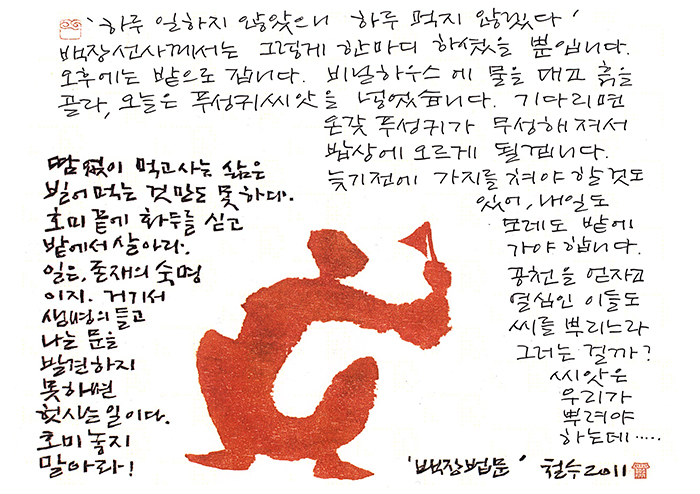 '하루 일하지 않았으니 하루 먹지 않겠다'
백장선사께서는 그렇게 한마디 하셨을 뿐입니다.
오후에는 밭으로 갑니다. 비닐하우스에 물을 대고 흙을
골라, 오늘은 푸성귀씨앗을 넣었습니다. 기다리면
온갖 푸성귀가 무성해져서
밥상에 오르게 될겝니다.
늦기전에 가지를 쳐야 할 것도
있어, 내일도
모레도 밭에
가야 합니다.
공천을 얻자고
열심인 이들도
씨를 뿌리느라
그러는 걸까?
씨앗은
우리가
뿌려야
하는데.....
땀 없이 먹고사는 삶은
빌어먹는 것만도 못하다.
호미 끝에 화두를 싣고
밭에서 살아라.
일은, 존재의 숙명
이지. 거기서
생명의 들고
나는 문을
발견하지
못하면
헛사는 일이다.
호미 놓지
말아라!
'백장법문' 철수 2011